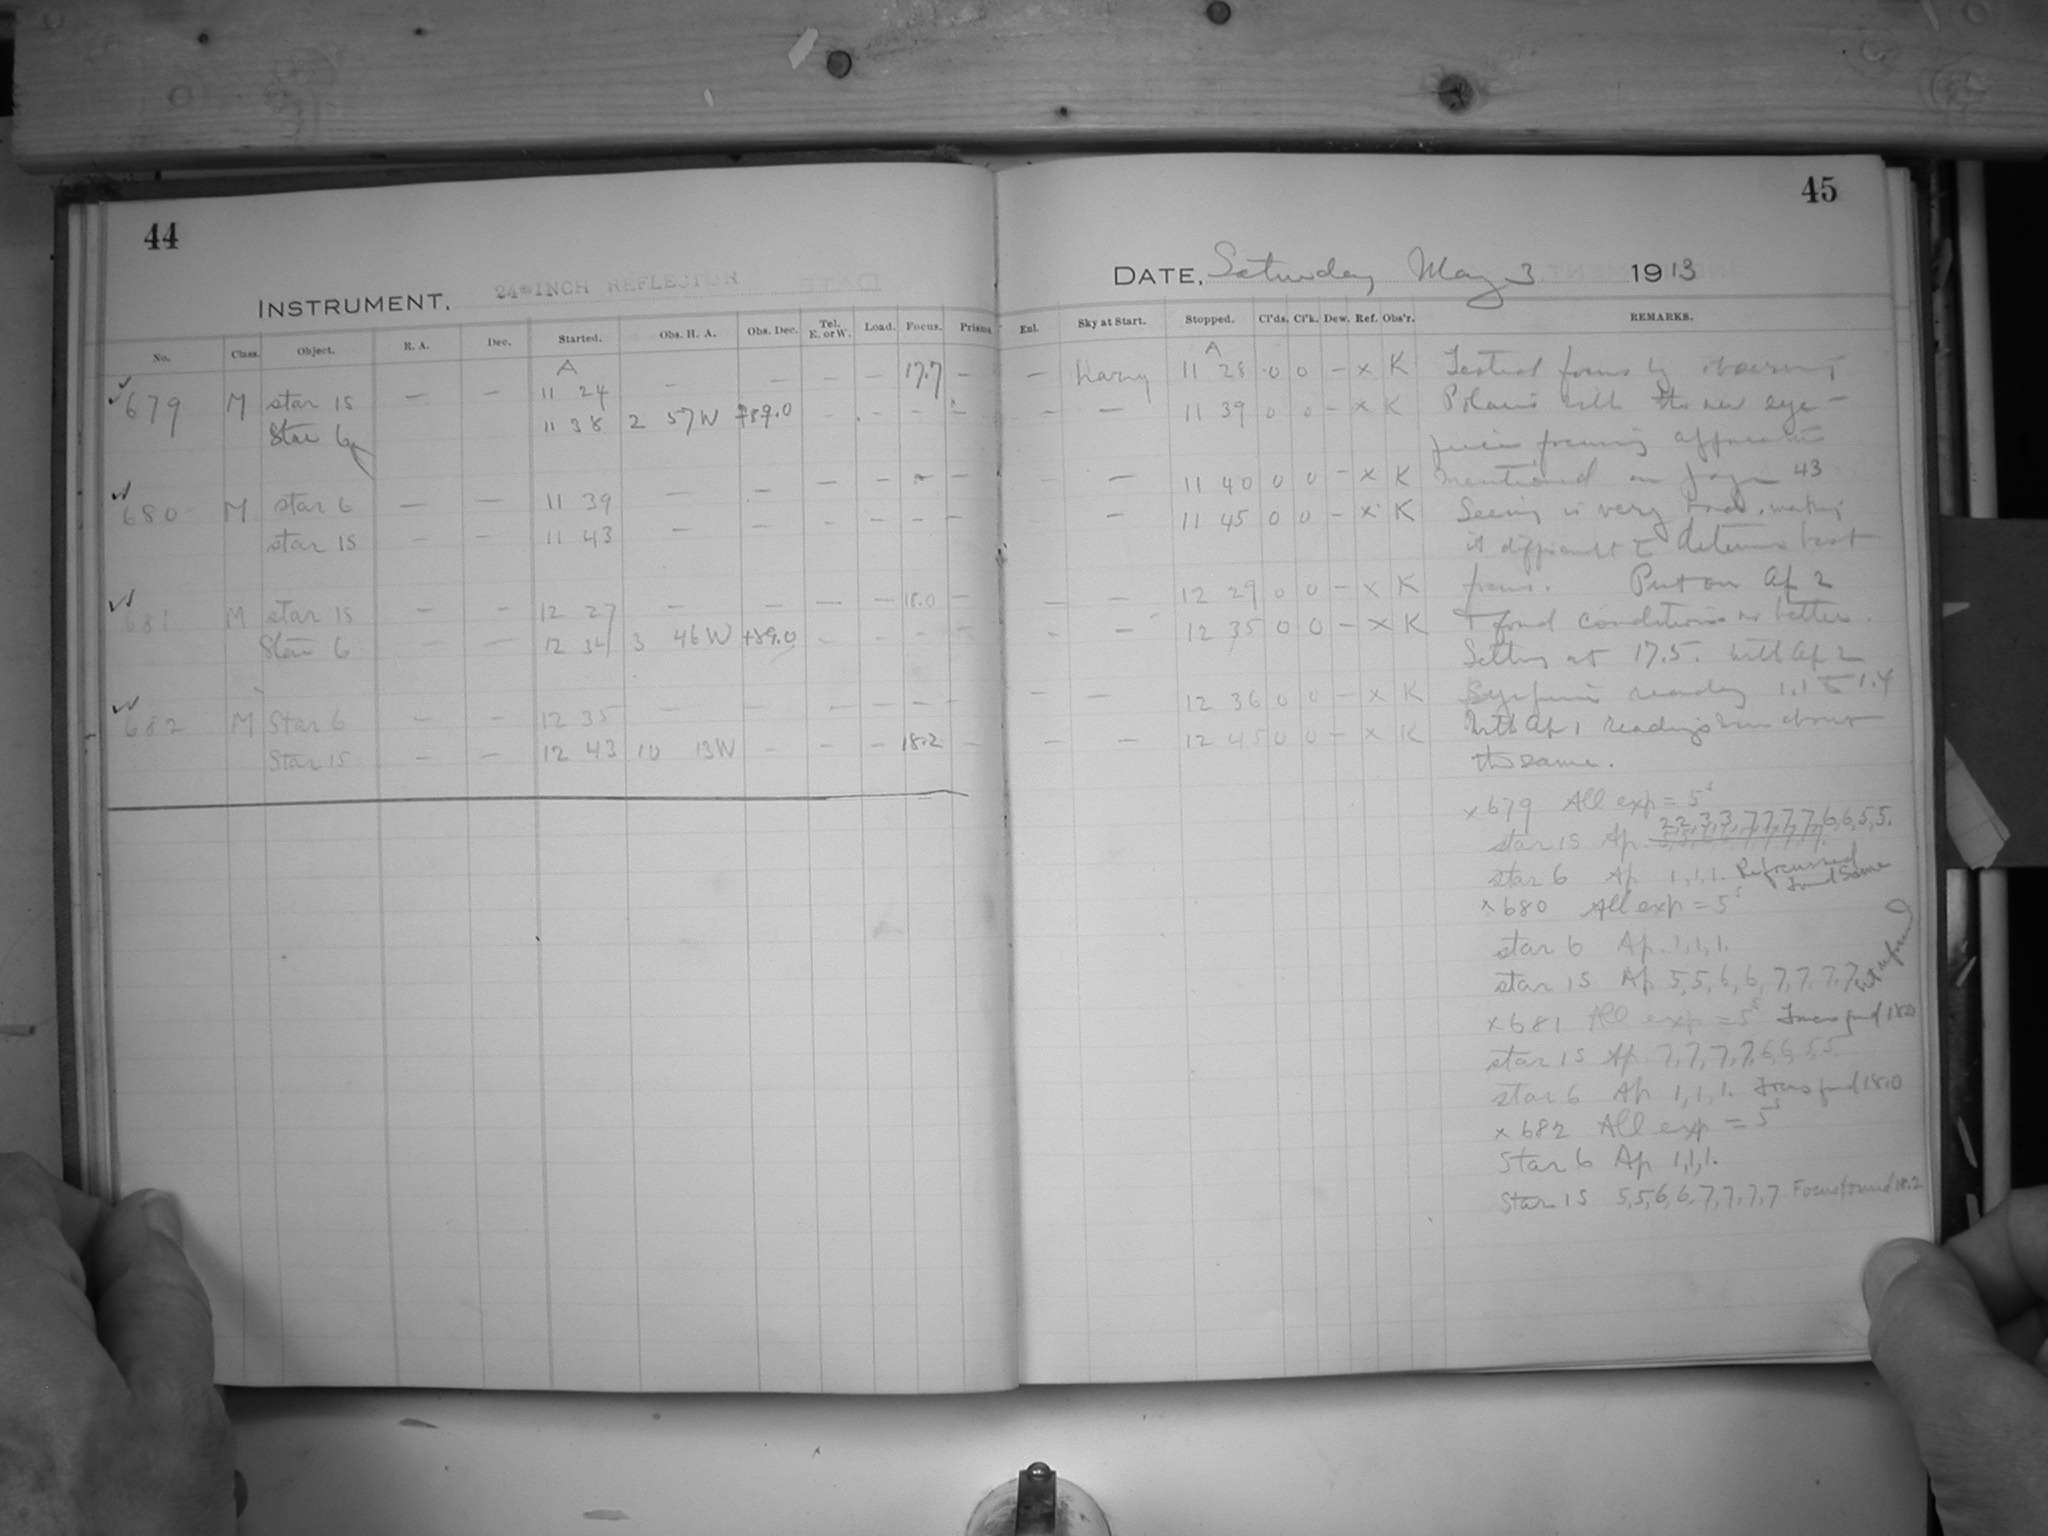 44
INSTRUMENT. 24-INCH REFLECTOR
No. Class. Object. R. A. Dec. Started. Obs. H. A. Obs. Dec. Tel. E. or W. Load. Focus. Prisms
A
679 M star 1s — — 11 24 — — — — 17.7 —
Star 6 11 38 2 57W +89.0 - - - -
680 M star 6 — — 11 39 — — — — - —
star 1s - — 11 43 — - - - - -
681 M star 1s - - 12 27 — — — — 18.0 —
Star 6 — — 12 34 3 46W +89.0 - - - -
682 M Star 6 - - 12 35 — — — — - —
Star 1s - — 12 43 10 13W - - - 18.2 —
45
DATE, Saturday May 3 1913
Enl. Sky at Start. Stopped. Cl'ds. Cl'k. Dew. Ref. Obs'r. REMARKS.
A
— hazy 11 28 0 0 — x K Tested focus by observing
- — 11 39 0 0 - x K Polaris with the new eye-
piece focusing apparatus
— 11 40 0 0 - x K mentioned on page 43
- 11 45 0 0 - x K Seeing is very bad, making
it difficult to determine best
— - 12 29 0 0 - x K focus. Put on Ap 2
- — 12 35 0 0 - x K & found conditions no better.
Setting at 17.5. with Ap 2
- — 12 36 0 0 - x K Eyepiece reading 1.1 to 1.4
— — 12 45 0 0 - x K With Ap 1 readings were about
the same.
x679 All exp = 5s
star 1s Ap. 2,2,3,3,7,7,7,7,6,6,5,5.
star 6 Ap 1,1,1. Refocussed found same
x680 All exp = 5s
star 6 Ap. 1,1,1.
star 1s Ap 5,5,6,6,7,7,7,7
x681 All exp = 5s Focus found 18.0
star 1s Ap 7,7,7,7,6,6,5,5.
star 6 Ap 1,1,1. Focus found 18.0
x682 All exp = 5s
Star 6 Ap 1,1,1.
Star 1s 5,5,6,6,7,7,7,7 Focus found 18.2